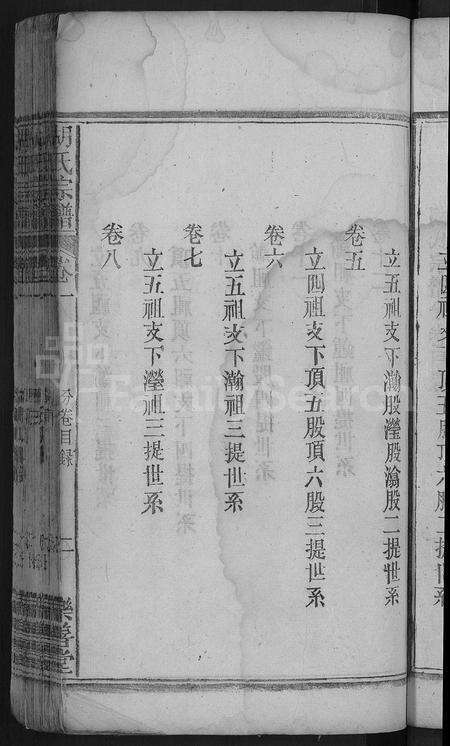 立四祖支下頂五股頂六股二提世系
立五祖支下瀚股瀅股滃股二提世系
卷五
立四祖支下頂五股頂六股三提世系
卷六
立五祖支下瀚祖三提世系
卷七
立五祖支下瀅祖三提世系
卷八
胡氏宗譜
卷一
分卷目錄
二
樂善堂
FamilySearch